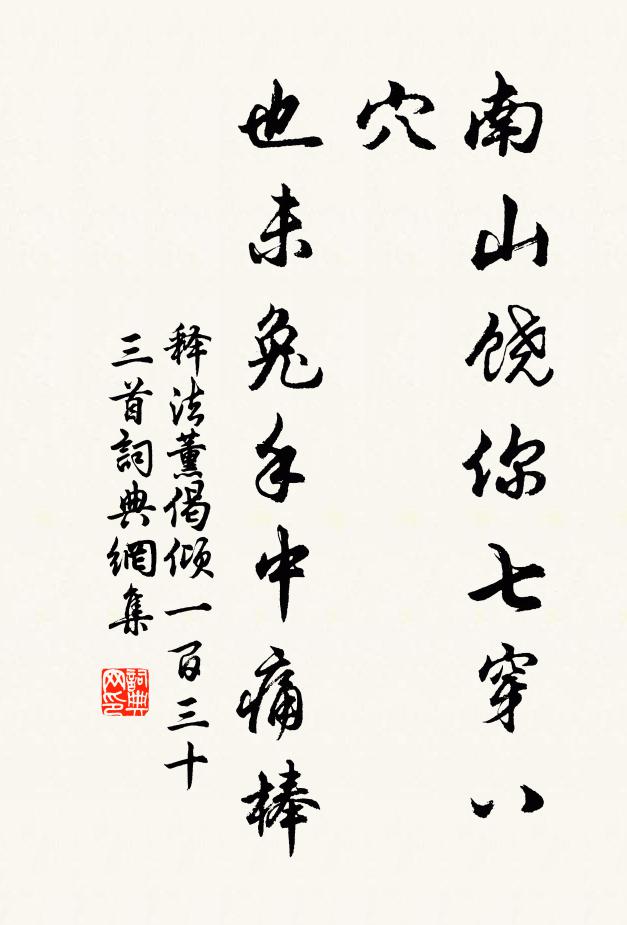 南山饶你七穿八
穴
也未兔手中痛棒
释法薰偈倾一百三十
三首詞典網集
詞典网印